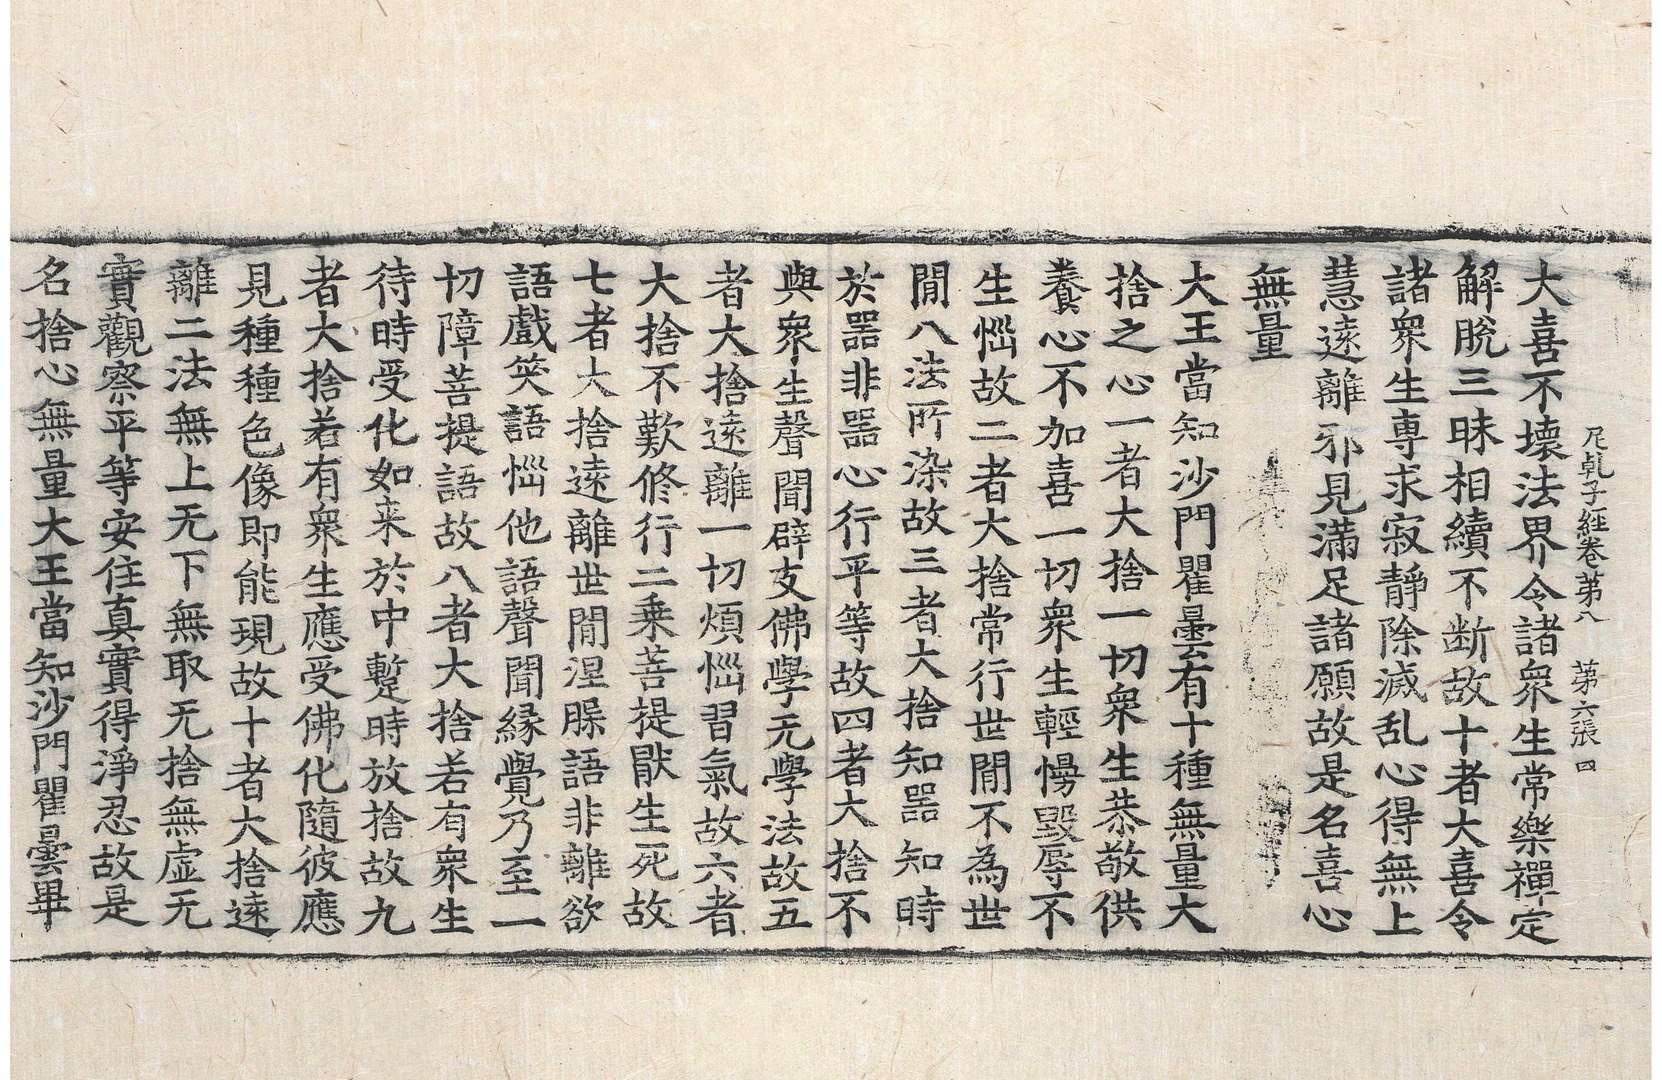 尼乹子経卷第八　第六張　四
大喜不壞法界令諸衆生常樂禪定
解脫三昧相續不断故十者大喜令
諸衆生専求寂靜除滅乱心得無上
慧遠離邪見滿足諸願故是名喜心
無量
大王當知沙門瞿曇有十種無量大
捨之心一者大捨一切衆生恭敬供
養心不加喜一切衆生輕慢毀辱不
生惱故二者大捨常行世閒不為世
閒八法所染故三者大捨知器知時
於器非器心行平等故四者大捨不
與衆生聲聞辟支佛學无學法故五
者大捨遠離一切煩惱習氣故六者
大捨不歎修行二乗菩提猒生死故
七者大捨遠離世閒涅槃語非離欲
語戲笑語惱他語聲聞縁覺乃至一
切障菩提語故八者大捨若有衆生
待時受化如来於中蹔時放捨故九
者大捨若有衆生應受佛化隨彼應
見種種色像即能現故十者大捨遠
離二法無上无下無取无捨無虚无
實觀察平等安住真實得淨忍故是
名捨心無量大王當知沙門瞿曇畢